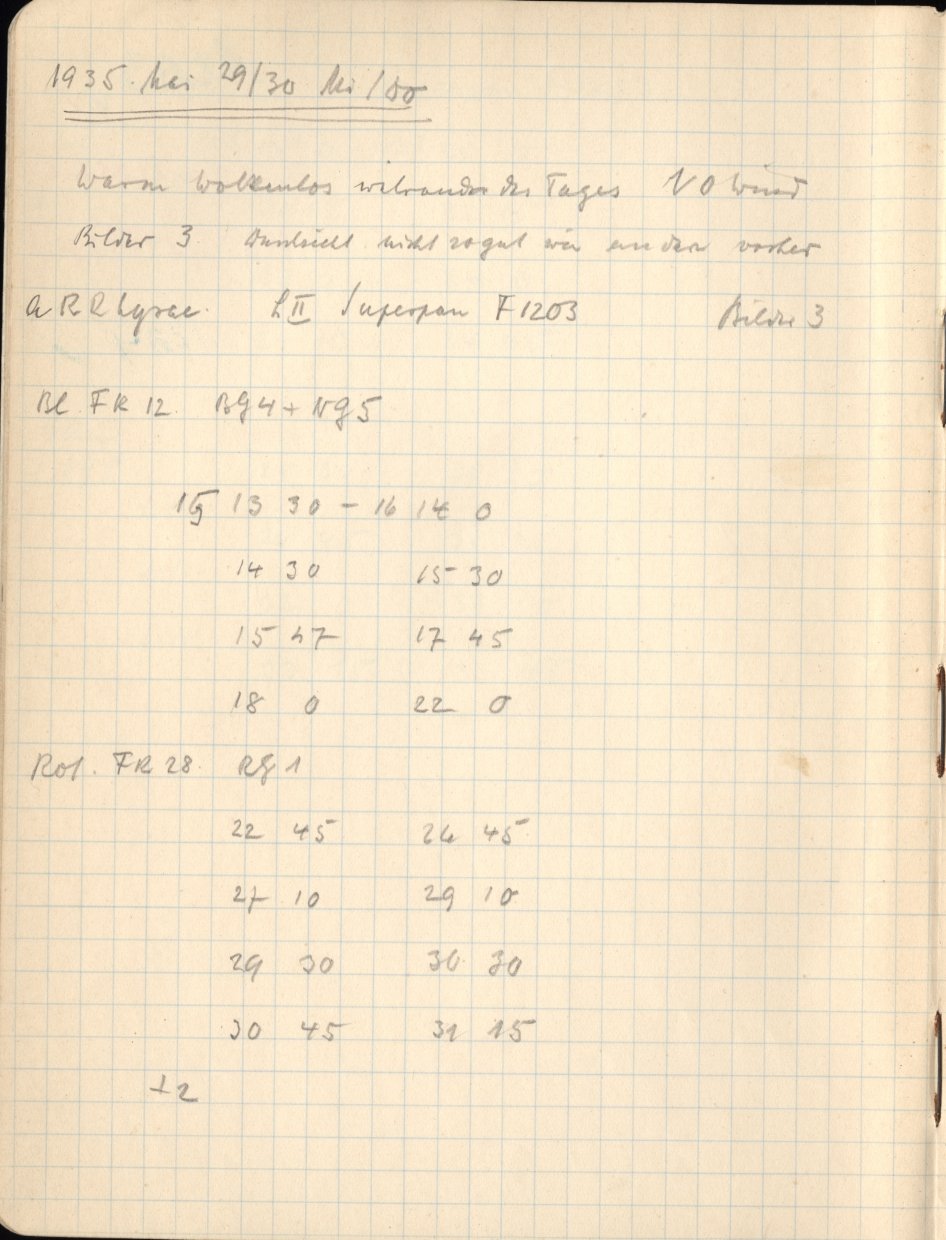 1935. Mai 29/30 Mi/Do
Warm Wolkenlos während des Tages NO Wind
Bilder 3 Durchsicht nicht so gut wie an den vorher
a RR Lyrae. L II Superpan F 1203 Bilder 3
Bl. FK 12. BG 4 + NG 5
15 13 30 - 16 14 0
14 30 15 30
15 47 17 45
18 0 22 0
Rot. FK 28. RG 1
22 45 26 45
27 10 29 10
29 30 30 30
30 45 31 15
+2